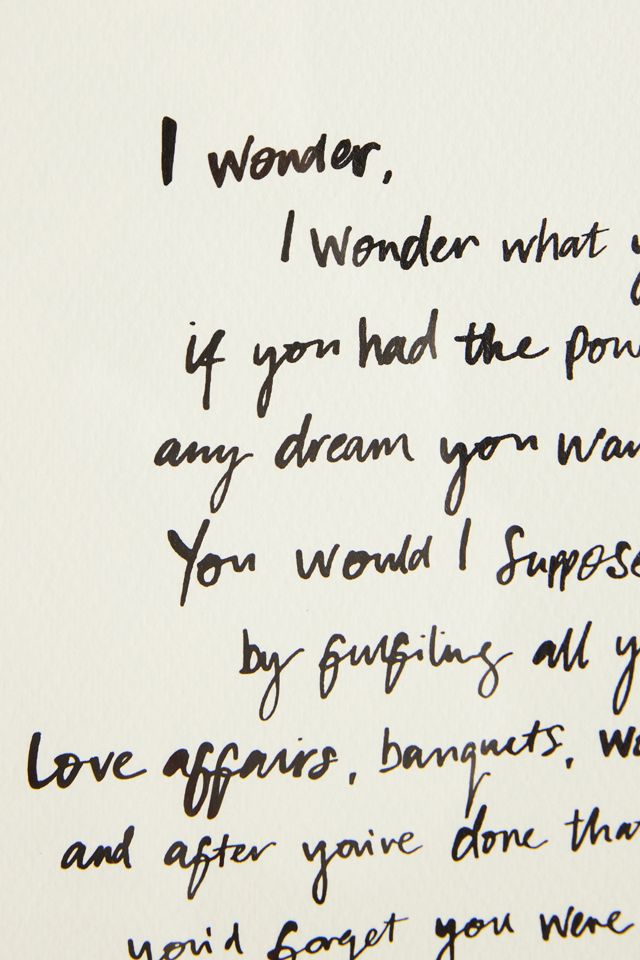 I wonder,
I wonder what y
if you had the pow
any dream you wan
You would I suppose
by fulfiling all y
Love affairs, banquets, wa
and after you've done that
you'd forget you were